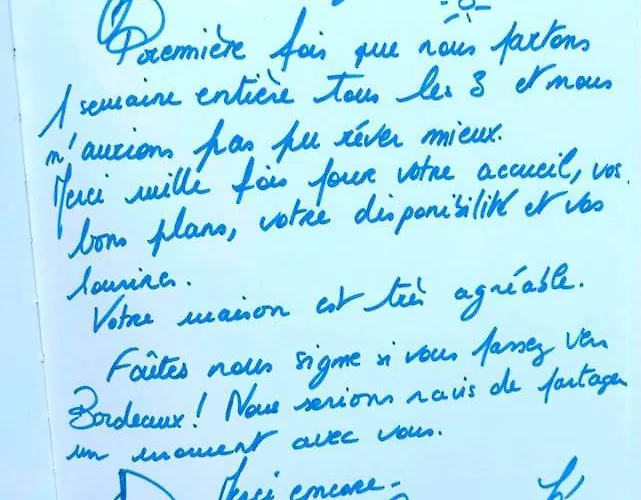 Première fois que nous partons
1 semaine entière tous les 3 et nous
n'aurions pas pu rêver mieux.
Merci mille fois pour votre accueil, vos
bons plans, votre disponibilité et vos
sourires.
Votre maison est très agréable.
Faîtes nous signe si vous passez vers
Bordeaux! Nous serions ravis de partager
un moment avec vous.
Merci encore-